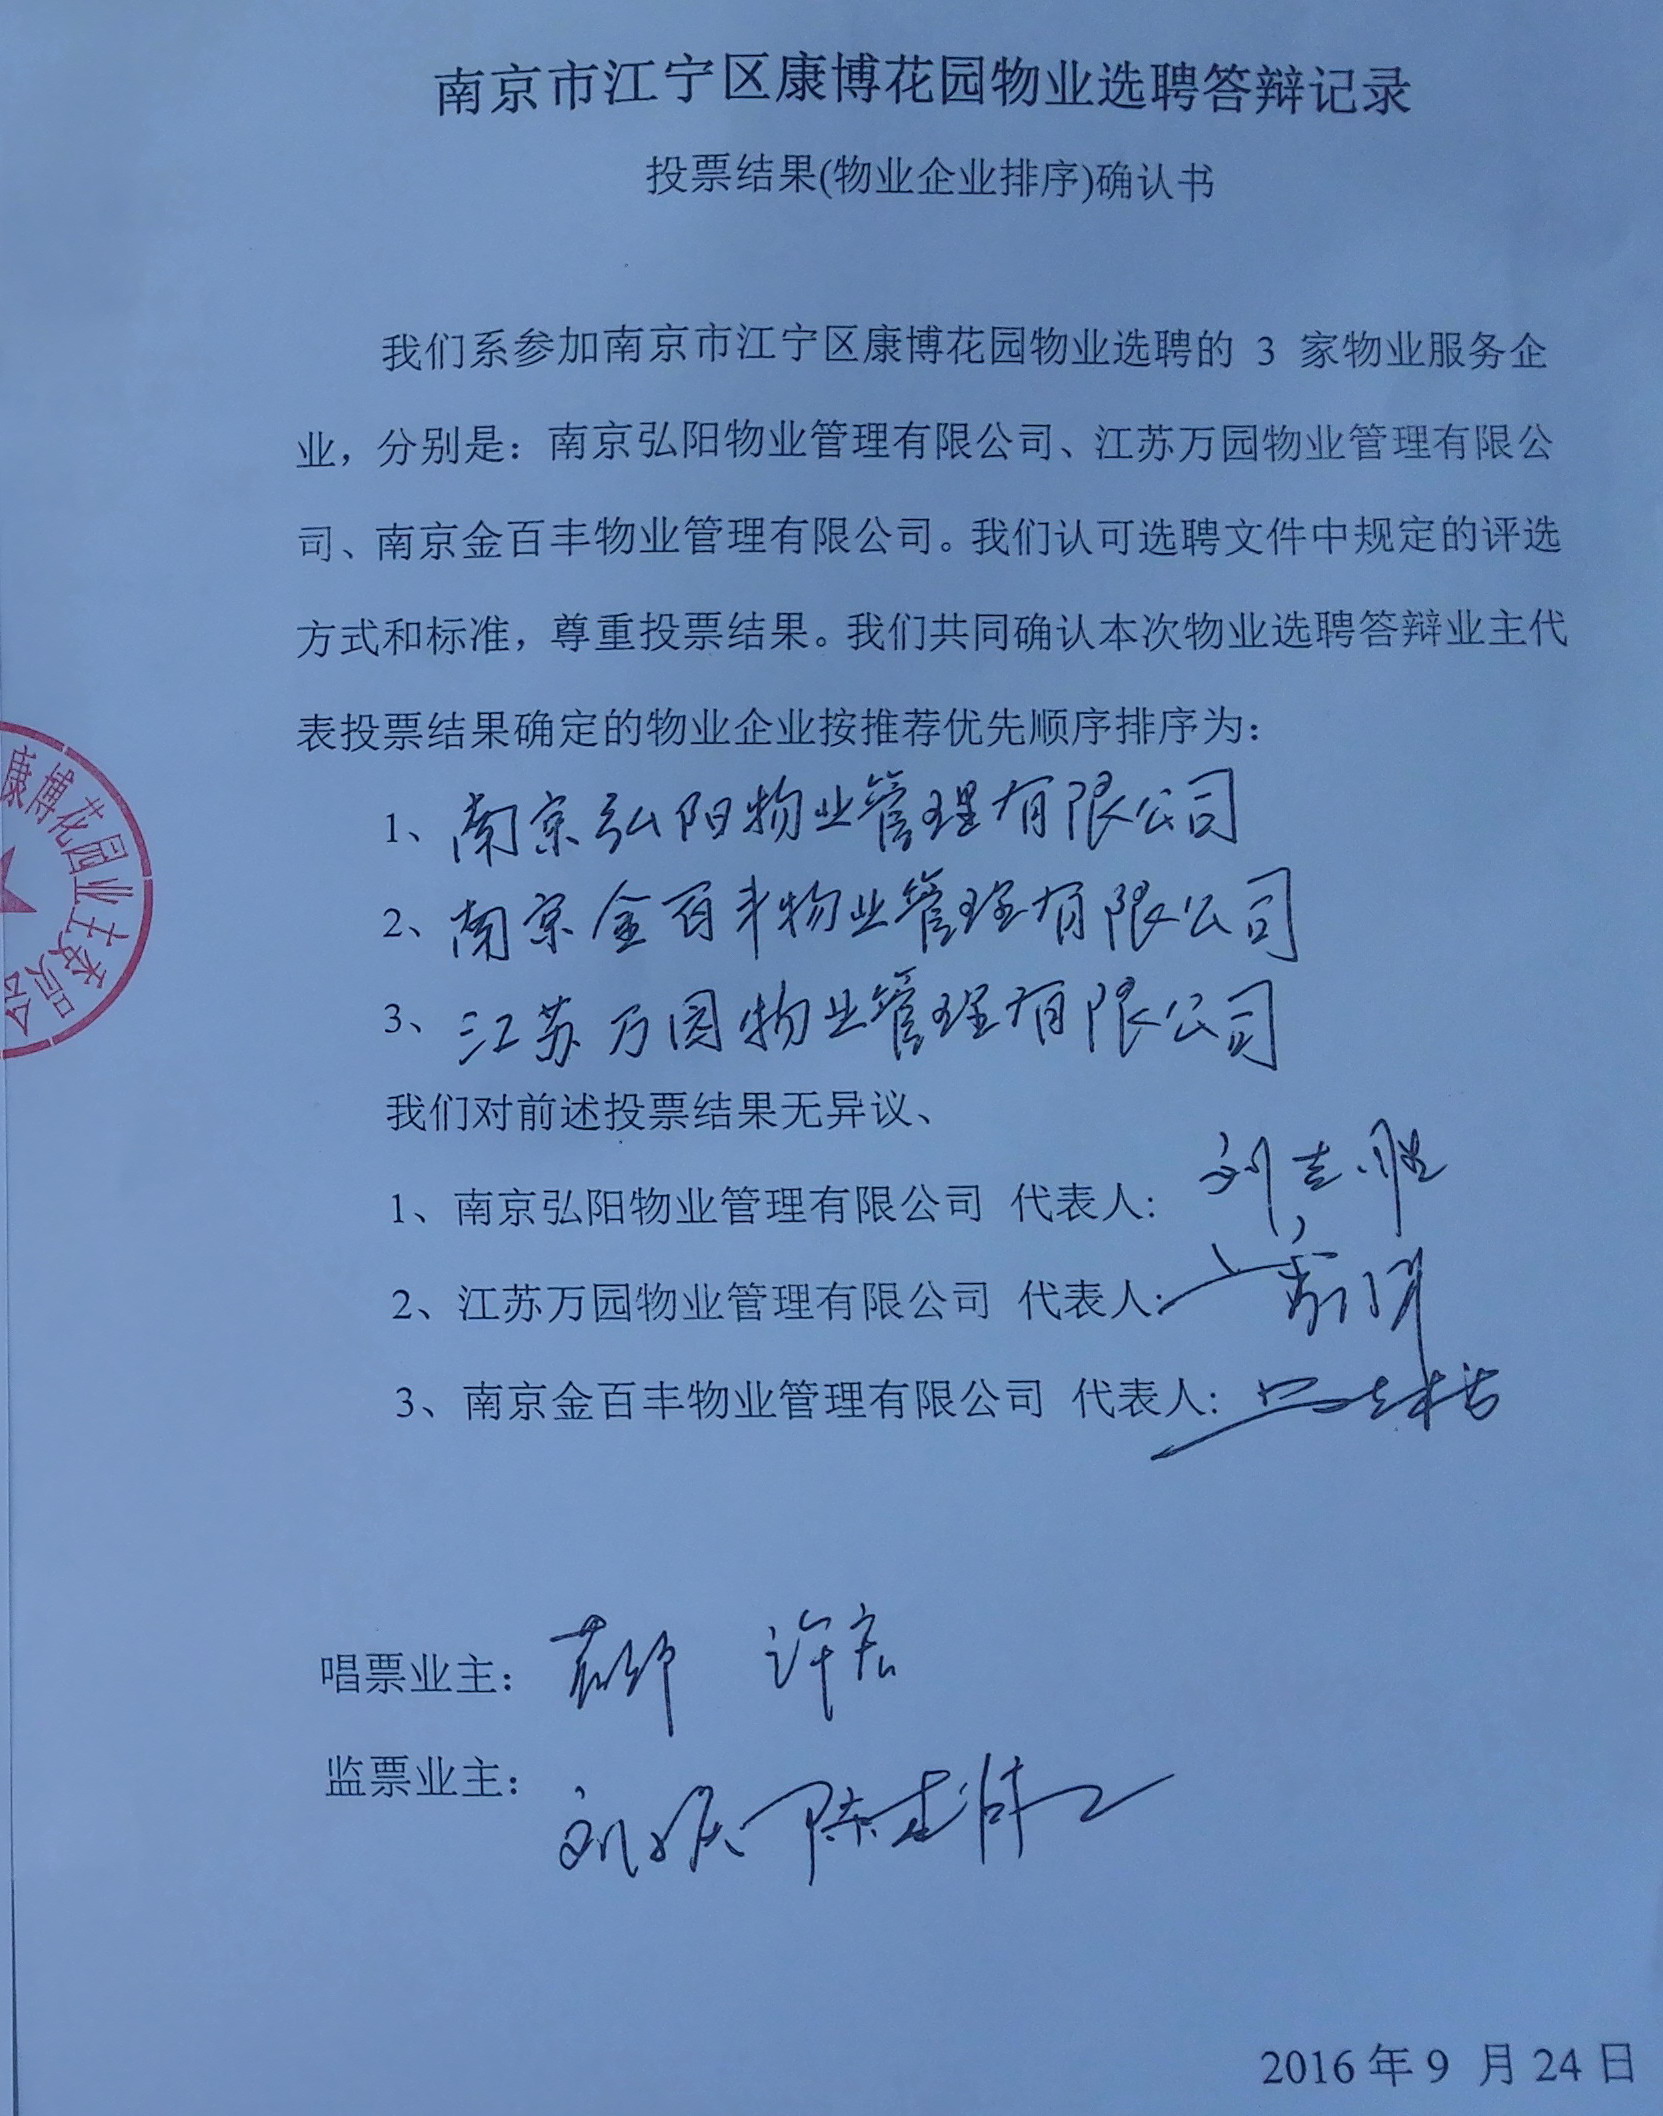 南京市江宁区康博花园物业选聘答辩记录
投票结果(物业企业排序)确认书
我们系参加南京市江宁区康博花园物业选聘的 3 家物业服务企
业，分别是：南京弘阳物业管理有限公司、江苏万园物业管理有限公
司、南京金百丰物业管理有限公司。我们认可选聘文件中规定的评选
方式和标准，尊重投票结果。我们共同确认本次物业选聘答辩业主代
表投票结果确定的物业企业按推荐优先顺序排序为：
康博花园业主委员会
1、南京弘阳物业管理有限公司
2、南京金百丰物业管理有限公司
3、江苏万园物业管理有限公司
我们对前述投票结果无异议、
1、南京弘阳物业管理有限公司 代表人: 刘志胜
2、江苏万园物业管理有限公司 代表人:
3、南京金百丰物业管理有限公司 代表人:
唱票业主： 许宏
监票业主：
2016 年 9 月 24 日